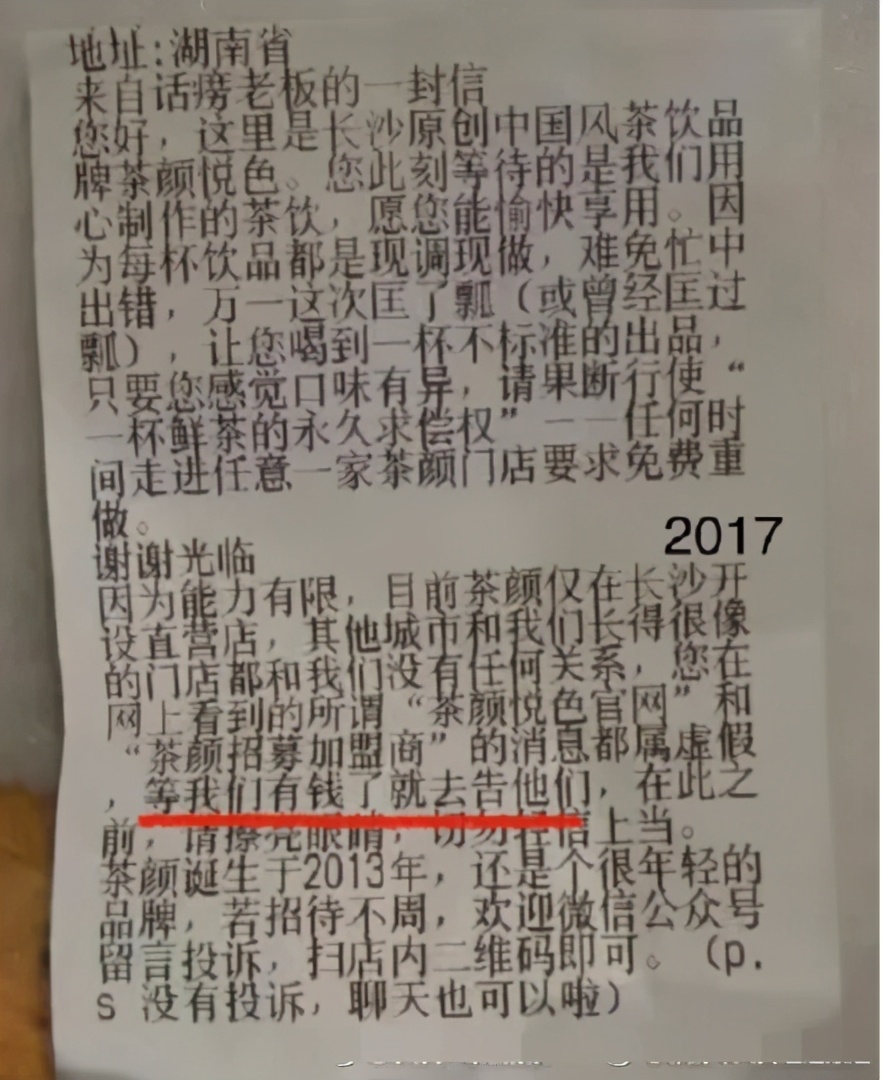 地址:湖南省
来自话痨老板的一封信
您好，这里是长沙原创中国风茶饮品
牌茶颜悦色。您此刻等待的是我们用
心制作的茶饮，愿您能愉快享用。因
为每杯饮品都是现调现做，难免忙中
出错，万一这次匡了瓢（或曾经匡过
瓢），让您喝到一杯不标准的出品，
只要您感觉口味有异，请果断行使“
一杯鲜茶的永久求偿权”——任何时
间走进任意一家茶颜门店要求免费重
做。
2017
谢谢光临
因为能力有限，目前茶颜仅在长沙开
设直营店，其他城市和我们长得很像
的门店都和我们没有任何关系，您在
网上看到的所谓“茶颜悦色官网”和
“茶颜招募加盟商”的消息都属虚假
，等我们有钱了就去告他们，在此之
前，请擦亮眼睛，切勿轻信上当。
茶颜诞生于2013年，还是个很年轻的
品牌，若招待不周，欢迎微信公众号
留言投诉，扫店内二维码即可。（p.
s 没有投诉，聊天也可以啦）